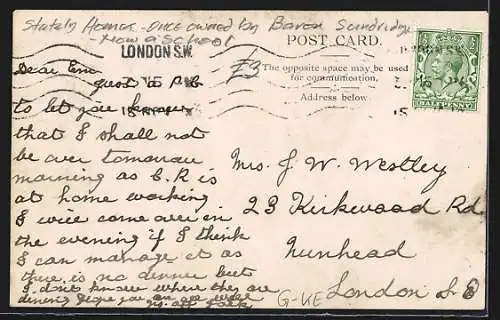 Stately Homes - once owned by Baron Sundridge
- Now a School
LONDON S.W.
£3
POST CARD.
The opposite space may be used
for communication.
Address below
HALFPENNY
Dear Em
Just a P.C
to let you know
that I shall not
be over tomorrow
morning as C.R is
at home working
I will come over in
the evening if I think
I can manage it as
there is no dinner but
I don't know where they are
dining hope you are
Mrs. J. W. Westley
23 Kirkwood Rd
Nunhead
London S.E
G-KE